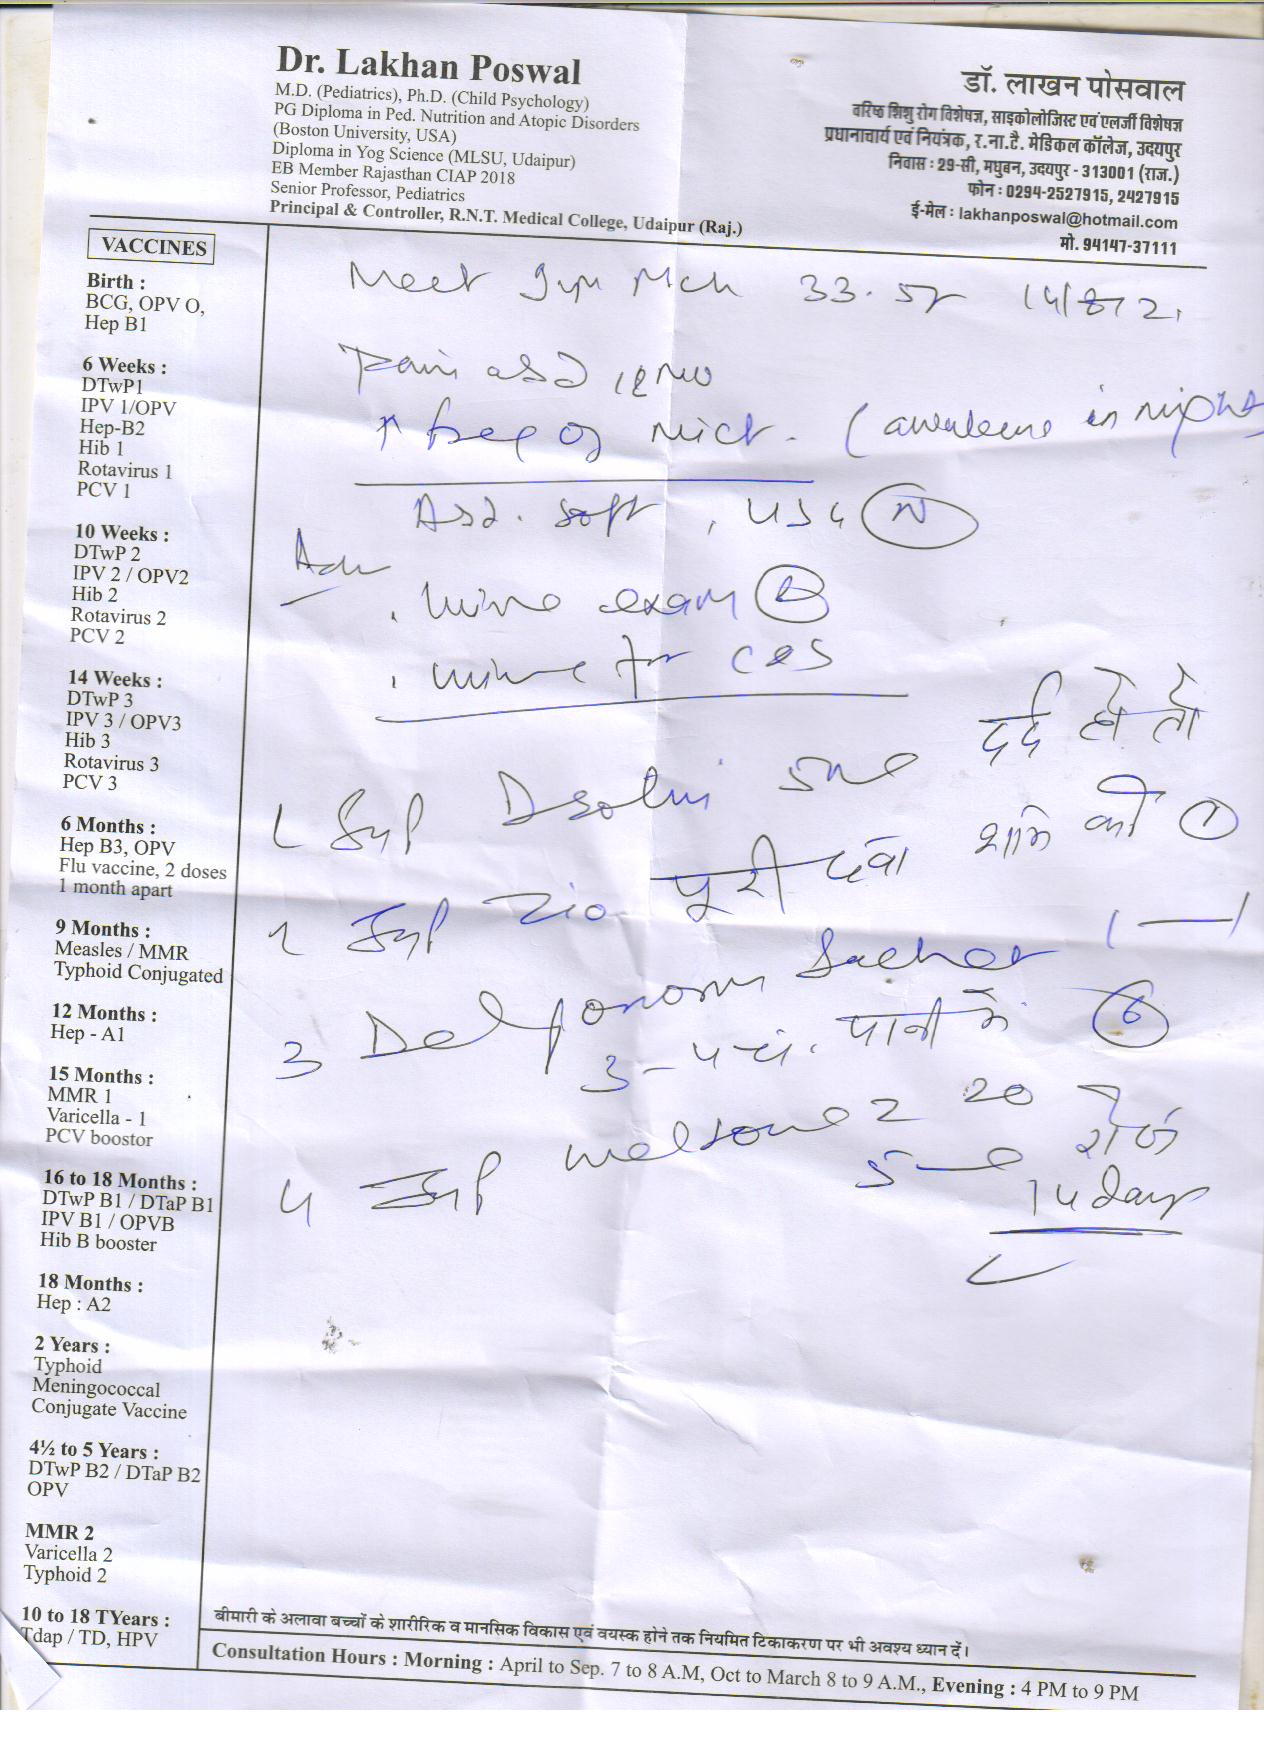 Dr. Lakhan Poswal
M.D. (Pediatrics), Ph.D. (Child Psychology)
PG Diploma in Ped. Nutrition and Atopic Disorders
(Boston University, USA)
Diploma in Yog Science (MLSU, Udaipur)
EB Member Rajasthan CIAP 2018
Senior Professor, Pediatrics
Principal & Controller, R.N.T. Medical College, Udaipur (Raj.)
डॉ. लाखन पोसवाल
वरिष्ठ शिशु रोग विशेषज्ञ, साइकोलोजिस्ट एवं एलर्जी विशेषज्ञ
प्रधानाचार्य एवं नियंत्रक, र.ना.टै. मेडिकल कॉलेज, उदयपुर
निवास : 29-सी, मधुबन, उदयपुर - 313001 (राज.)
फोन : 0294-2527915, 2427915
ई-मेल : lakhanposwal@hotmail.com
मो. 94147-37111
VACCINES
Birth :
BCG, OPV O,
Hep B1
6 Weeks :
DTwP1
IPV 1/OPV
Hep-B2
Hib 1
Rotavirus 1
PCV 1
10 Weeks :
DTwP 2
IPV 2 / OPV2
Hib 2
Rotavirus 2
PCV 2
14 Weeks :
DTwP 3
IPV 3 / OPV3
Hib 3
Rotavirus 3
PCV 3
6 Months :
Hep B3, OPV
Flu vaccine, 2 doses
1 month apart
9 Months :
Measles / MMR
Typhoid Conjugated
12 Months :
Hep - A1
15 Months :
MMR 1
Varicella - 1
PCV boostor
16 to 18 Months :
DTwP B1 / DTaP B1
IPV B1 / OPVB
Hib B booster
18 Months :
Hep : A2
2 Years :
Typhoid
Meningococcal
Conjugate Vaccine
4½ to 5 Years :
DTwP B2 / DTaP B2
OPV
MMR 2
Varicella 2
Typhoid 2
10 to 18 TYears :
Tdap / TD, HPV
Meet
Pain
↑ freq of mict. (awakens in night
Abd. soft, USG N
Adv
urine exam R
urine for C&S
दर्द हो तो
1 Syp
पूरी दवा शाम को 1
2 Syp
3 Sachet
पानी में 6
4 Syp
रोज
14 days
बीमारी के अलावा बच्चों के शारीरिक व मानसिक विकास एवं वयस्क होने तक नियमित टिकाकरण पर भी अवश्य ध्यान दें।
Consultation Hours : Morning : April to Sep. 7 to 8 A.M, Oct to March 8 to 9 A.M., Evening : 4 PM to 9 PM